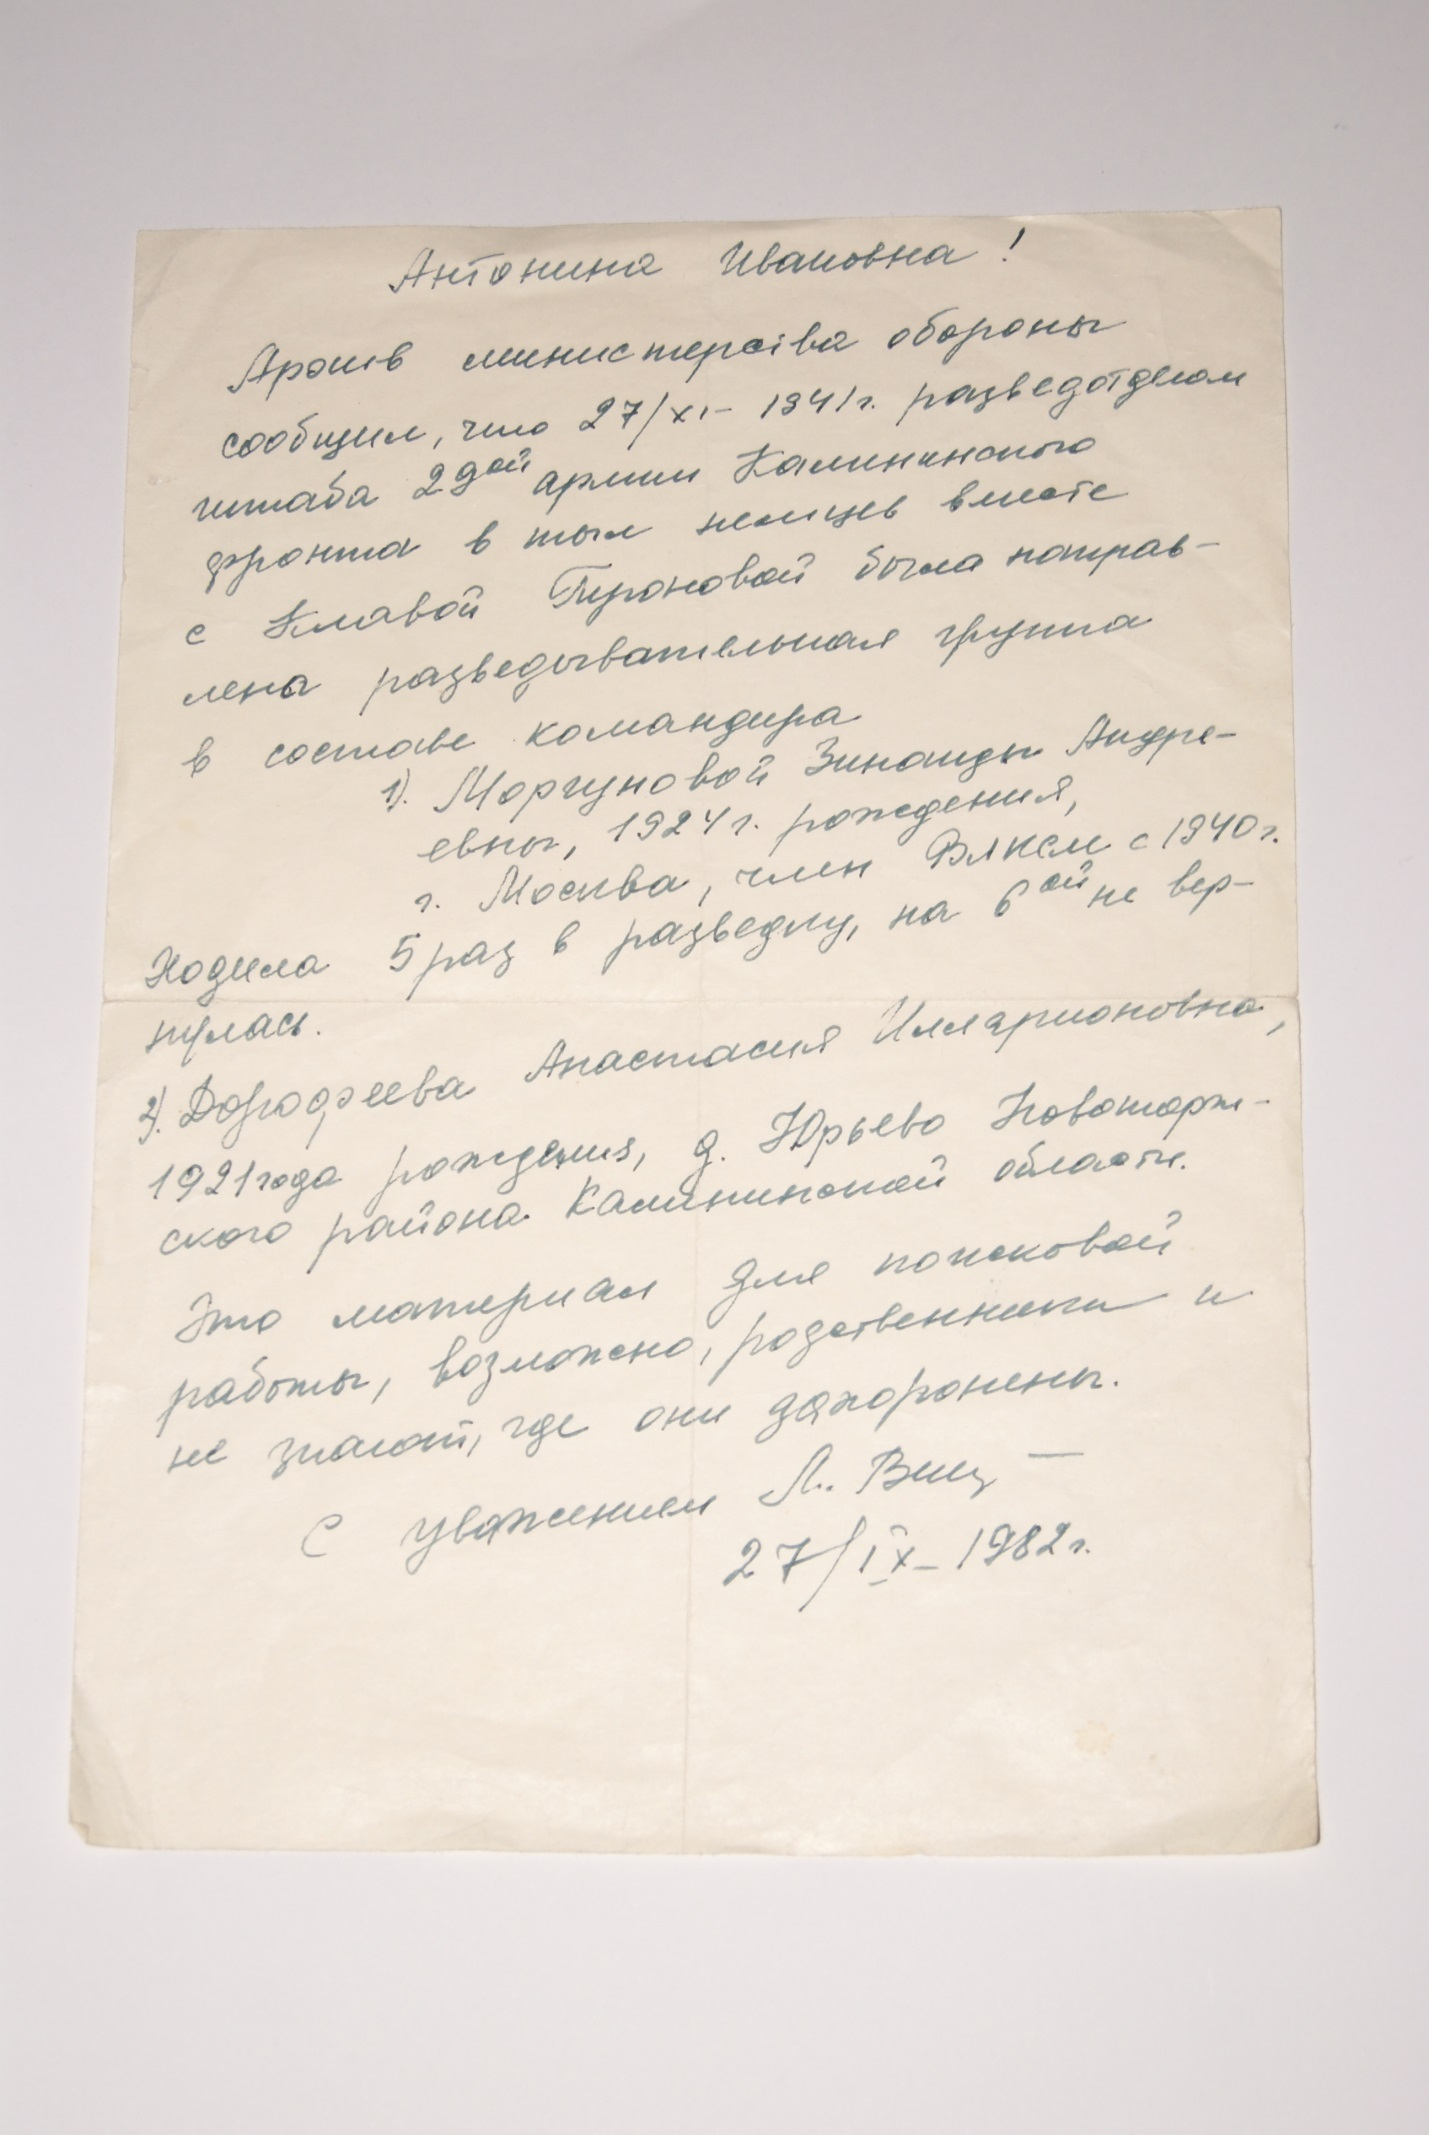 Антонина Ивановна!
Архив министерства обороны
сообщил, что 27/XI- 1941 г. разведотделом
штаба 29ой армии Калининского
фронта в тыл немцев вместе
с Клавой Тироновой была направ-
лена разведывательная группа
в составе командира
1). Моргуновой Зинаиды Андре-
евны, 1924 г. рождения,
г. Москва, член ВЛКСМ с 1940 г.
Ходила 5 раз в разведку, на 6ой не вер-
нулась.
2). Дорофеева Анастасия Илларионовна,
1921 года рождения, д. Юрьево Новоторж-
ского района Калининской области.
Это материал для поисковой
работы, возможно, родственники и
не знают, где они захоронены.
С уважением Л.
27/IX- 1982 г.